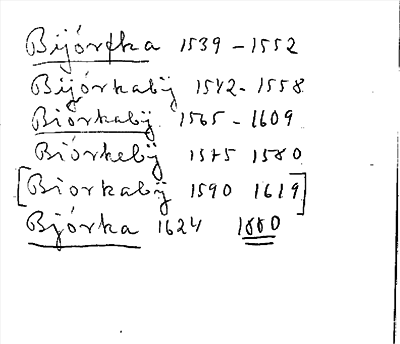 Bijórka 1539 - 1552
Bijórkabÿ 1542 - 1558
Biórkabÿ 1565 - 1609
Biórkebÿ 1575 1580
[Biorkabÿ 1590 1619]
Bjórka 1624 1880